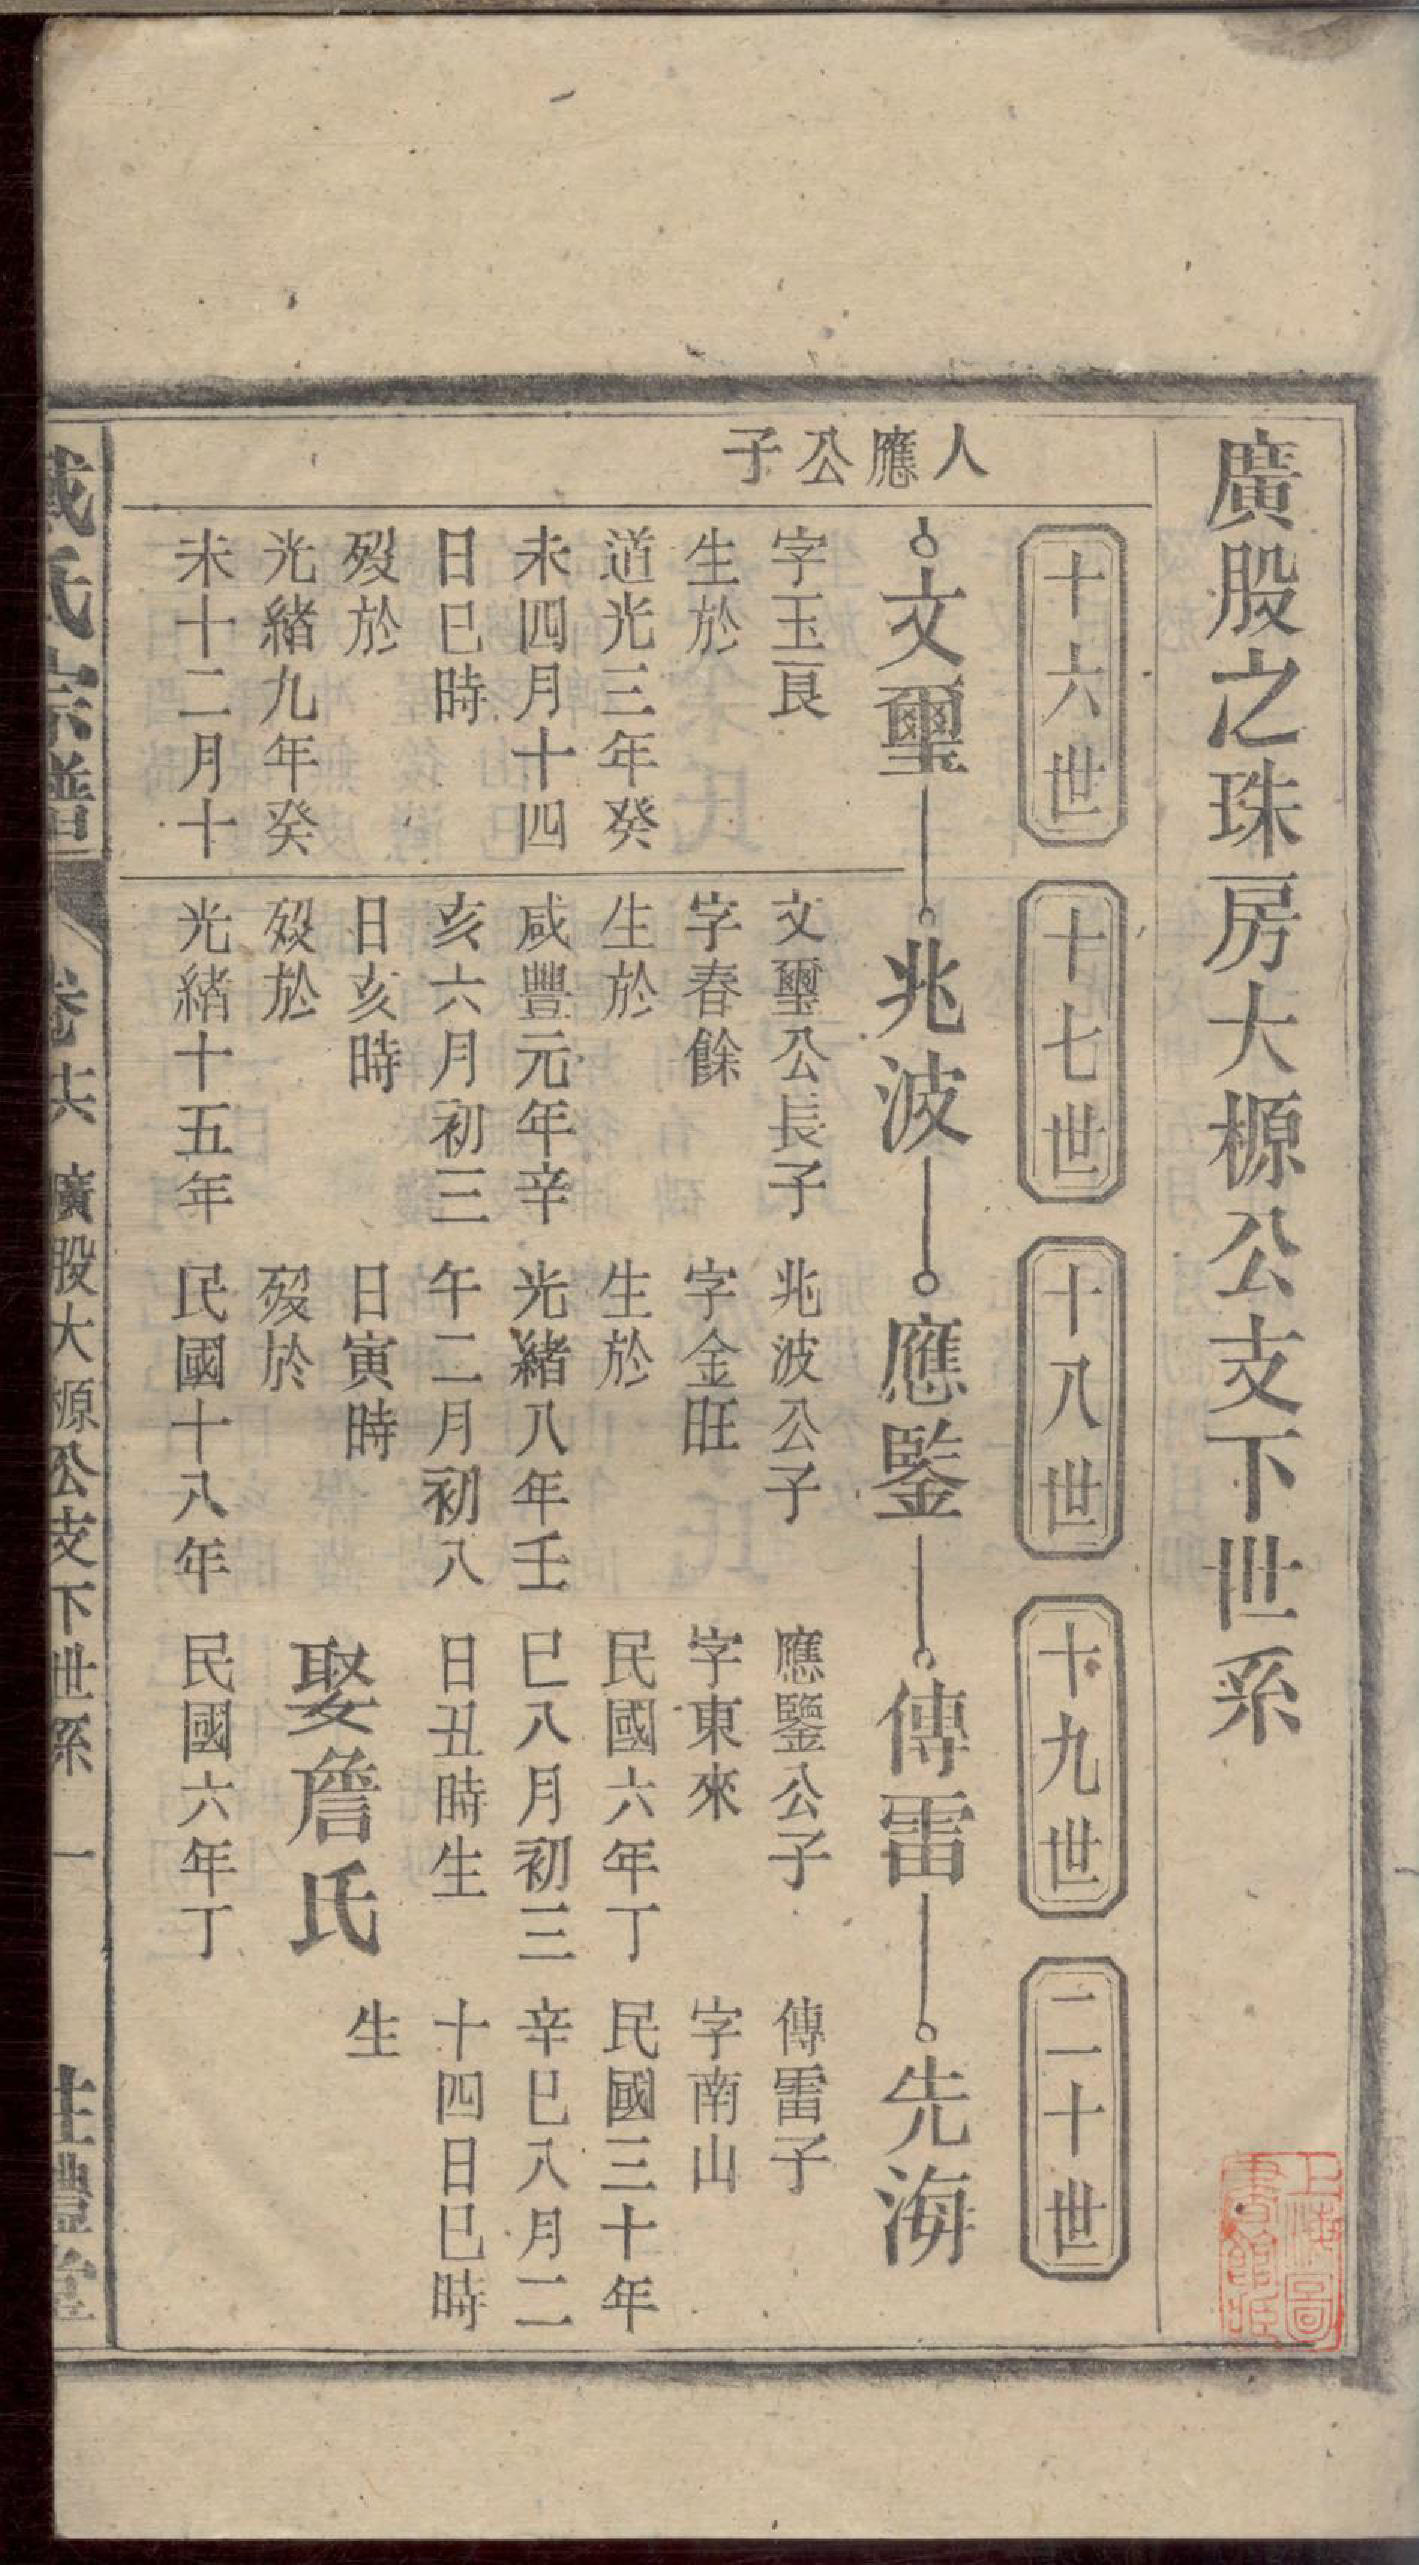 廣股之珠房大榞公支下世系
十六世
十七世
十八世
十九世
二十世
人應公子
文璽
字玉良
生於
道光三年癸
未四月十四
日巳時
歿於
光緒九年癸
未十二月十
兆波
文璽公長子
字春餘
生於
咸豐元年辛
亥六月初三
日亥時
歿於
光緒十五年
應鑒
兆波公子
字金旺
生於
光緒八年壬
午二月初八
日寅時
歿於
民國十八年
傳雷
應鑒公子
字東來
民國六年丁
巳八月初三
日丑時生
娶詹氏
民國六年丁
先海
傳雷子
字南山
民國三十年
辛巳八月二
十四日巳時
生
氏宗譜
卷共 廣股大榞公支下世系 一
禮堂
上海圖
書館